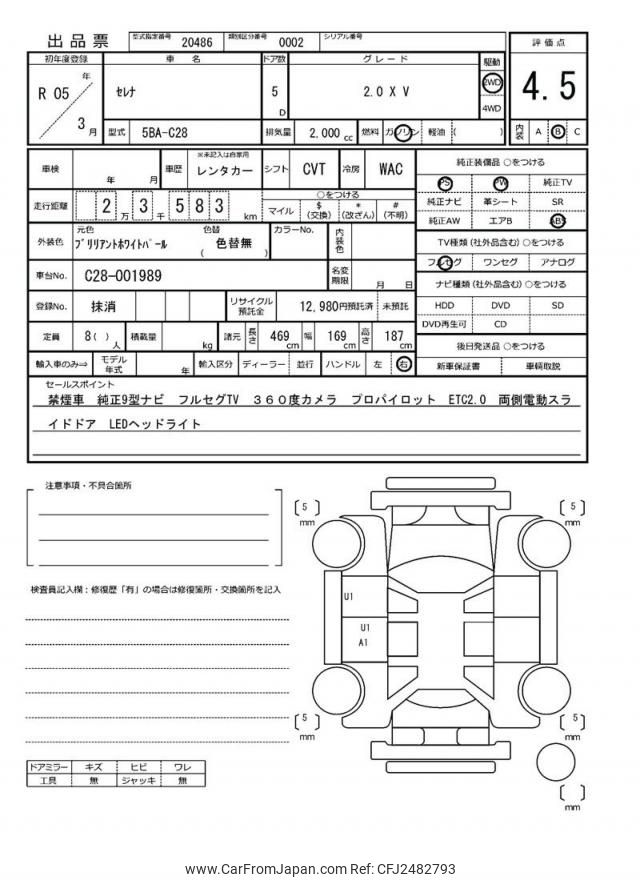 出品票
型式指定番号 20486 類別区分番号 0002 シリアル番号
初年度登録 車名 ドア数 グレード 駆動 評価点
R 05 年 3 月 セレナ 5 D 2.0 X V 2WD 4WD 4.5
型式 5BA-C28 排気量 2,000 cc 燃料 ガソリン 軽油 ( ) 内装 A B C
車検 年 月 車歴 ※未記入は自家用 レンタカー シフト CVT 冷房 WAC
走行距離 2 万 3 千 5 8 3 km ○をつける マイル $ (交換) * (改ざん) # (不明)
外装色 元色 ブリリアントホワイトパール 色替 ( 色替無 ) カラーNo. 内装色
車台No. C28-001989 名変期限 月 日
登録No. 抹消 リサイクル預託金 12,980円預託済 未預託
定員 8( ) 人 積載量 kg 諸元 長さ 469 cm 幅 169 cm 高さ 187 cm
輸入車のみ⇒ モデル年式 年 輸入区分 ディーラー 並行 ハンドル 左 右
純正装備品 ○をつける
PS PW 純正TV
純正ナビ 革シート SR
純正AW エアB ABS
TV種類 (社外品含む) ○をつける
フルセグ ワンセグ アナログ
ナビ種類 (社外品含む) ○をつける
HDD DVD SD
DVD再生可 CD
後日発送品 ○をつける
新車保証書 車輌取説
セールスポイント
禁煙車 純正9型ナビ フルセグTV 360度カメラ プロパイロット ETC2.0 両側電動スラ
イドドア LEDヘッドライト
注意事項・不具合箇所
検査員記入欄：修復歴「有」の場合は修復箇所・交換箇所を記入
ドアミラー キズ ヒビ ワレ
工具 無 ジャッキ 無
[ 5 ] mm
[ 5 ] mm
U1
U1
A1
[ 5 ] mm
[ 5 ] mm
[ ] mm
www.CarFromJapan.com Ref: CFJ2482793